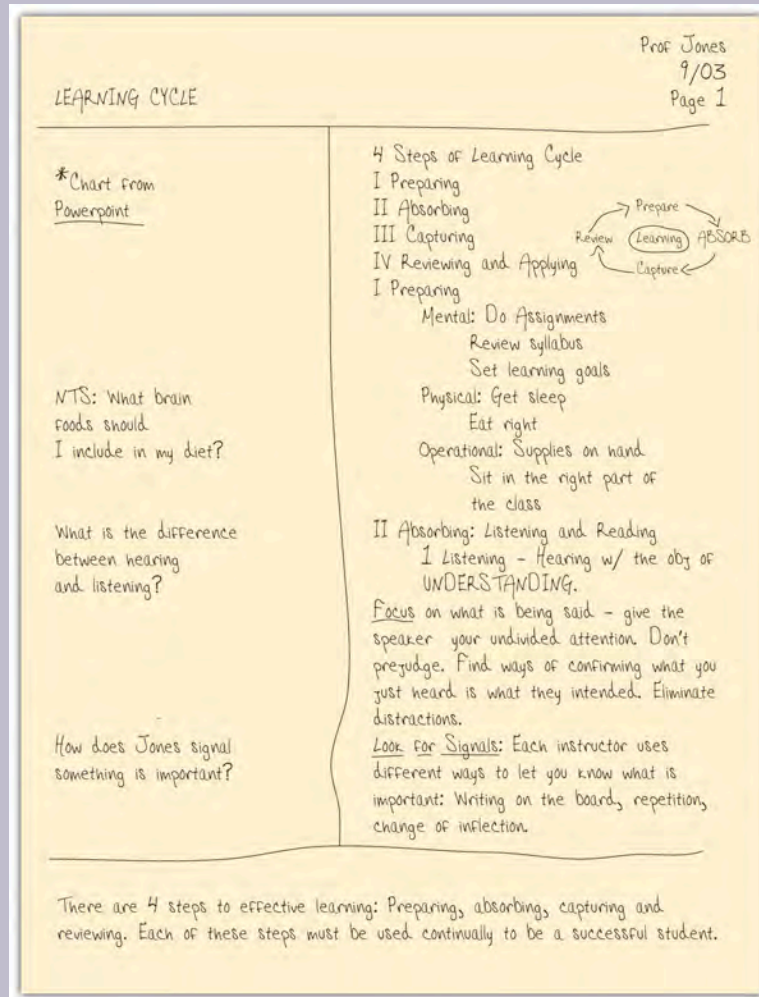 Prof Jones
9/03
LEARNING CYCLE
Page 1
*Chart from
Powerpoint
NTS: What brain
foods should
I include in my diet?
What is the difference
between hearing
and listening?
How does Jones signal
something is important?
4 Steps of Learning Cycle
I Preparing
II Absorbing
III Capturing
IV Reviewing and Applying
Prepare
Review Learning ABSORB
Capture
I Preparing
Mental: Do Assignments
Review syllabus
Set learning goals
Physical: Get sleep
Eat right
Operational: Supplies on hand
Sit in the right part of
the class
II Absorbing: Listening and Reading
1 Listening - Hearing w/ the obj of
UNDERSTANDING.
Focus on what is being said - give the
speaker your undivided attention. Don't
prejudge. Find ways of confirming what you
just heard is what they intended. Eliminate
distractions.
Look for Signals: Each instructor uses
different ways to let you know what is
important: Writing on the board, repetition,
change of inflection.
There are 4 steps to effective learning: Preparing, absorbing, capturing and
reviewing. Each of these steps must be used continually to be a successful student.